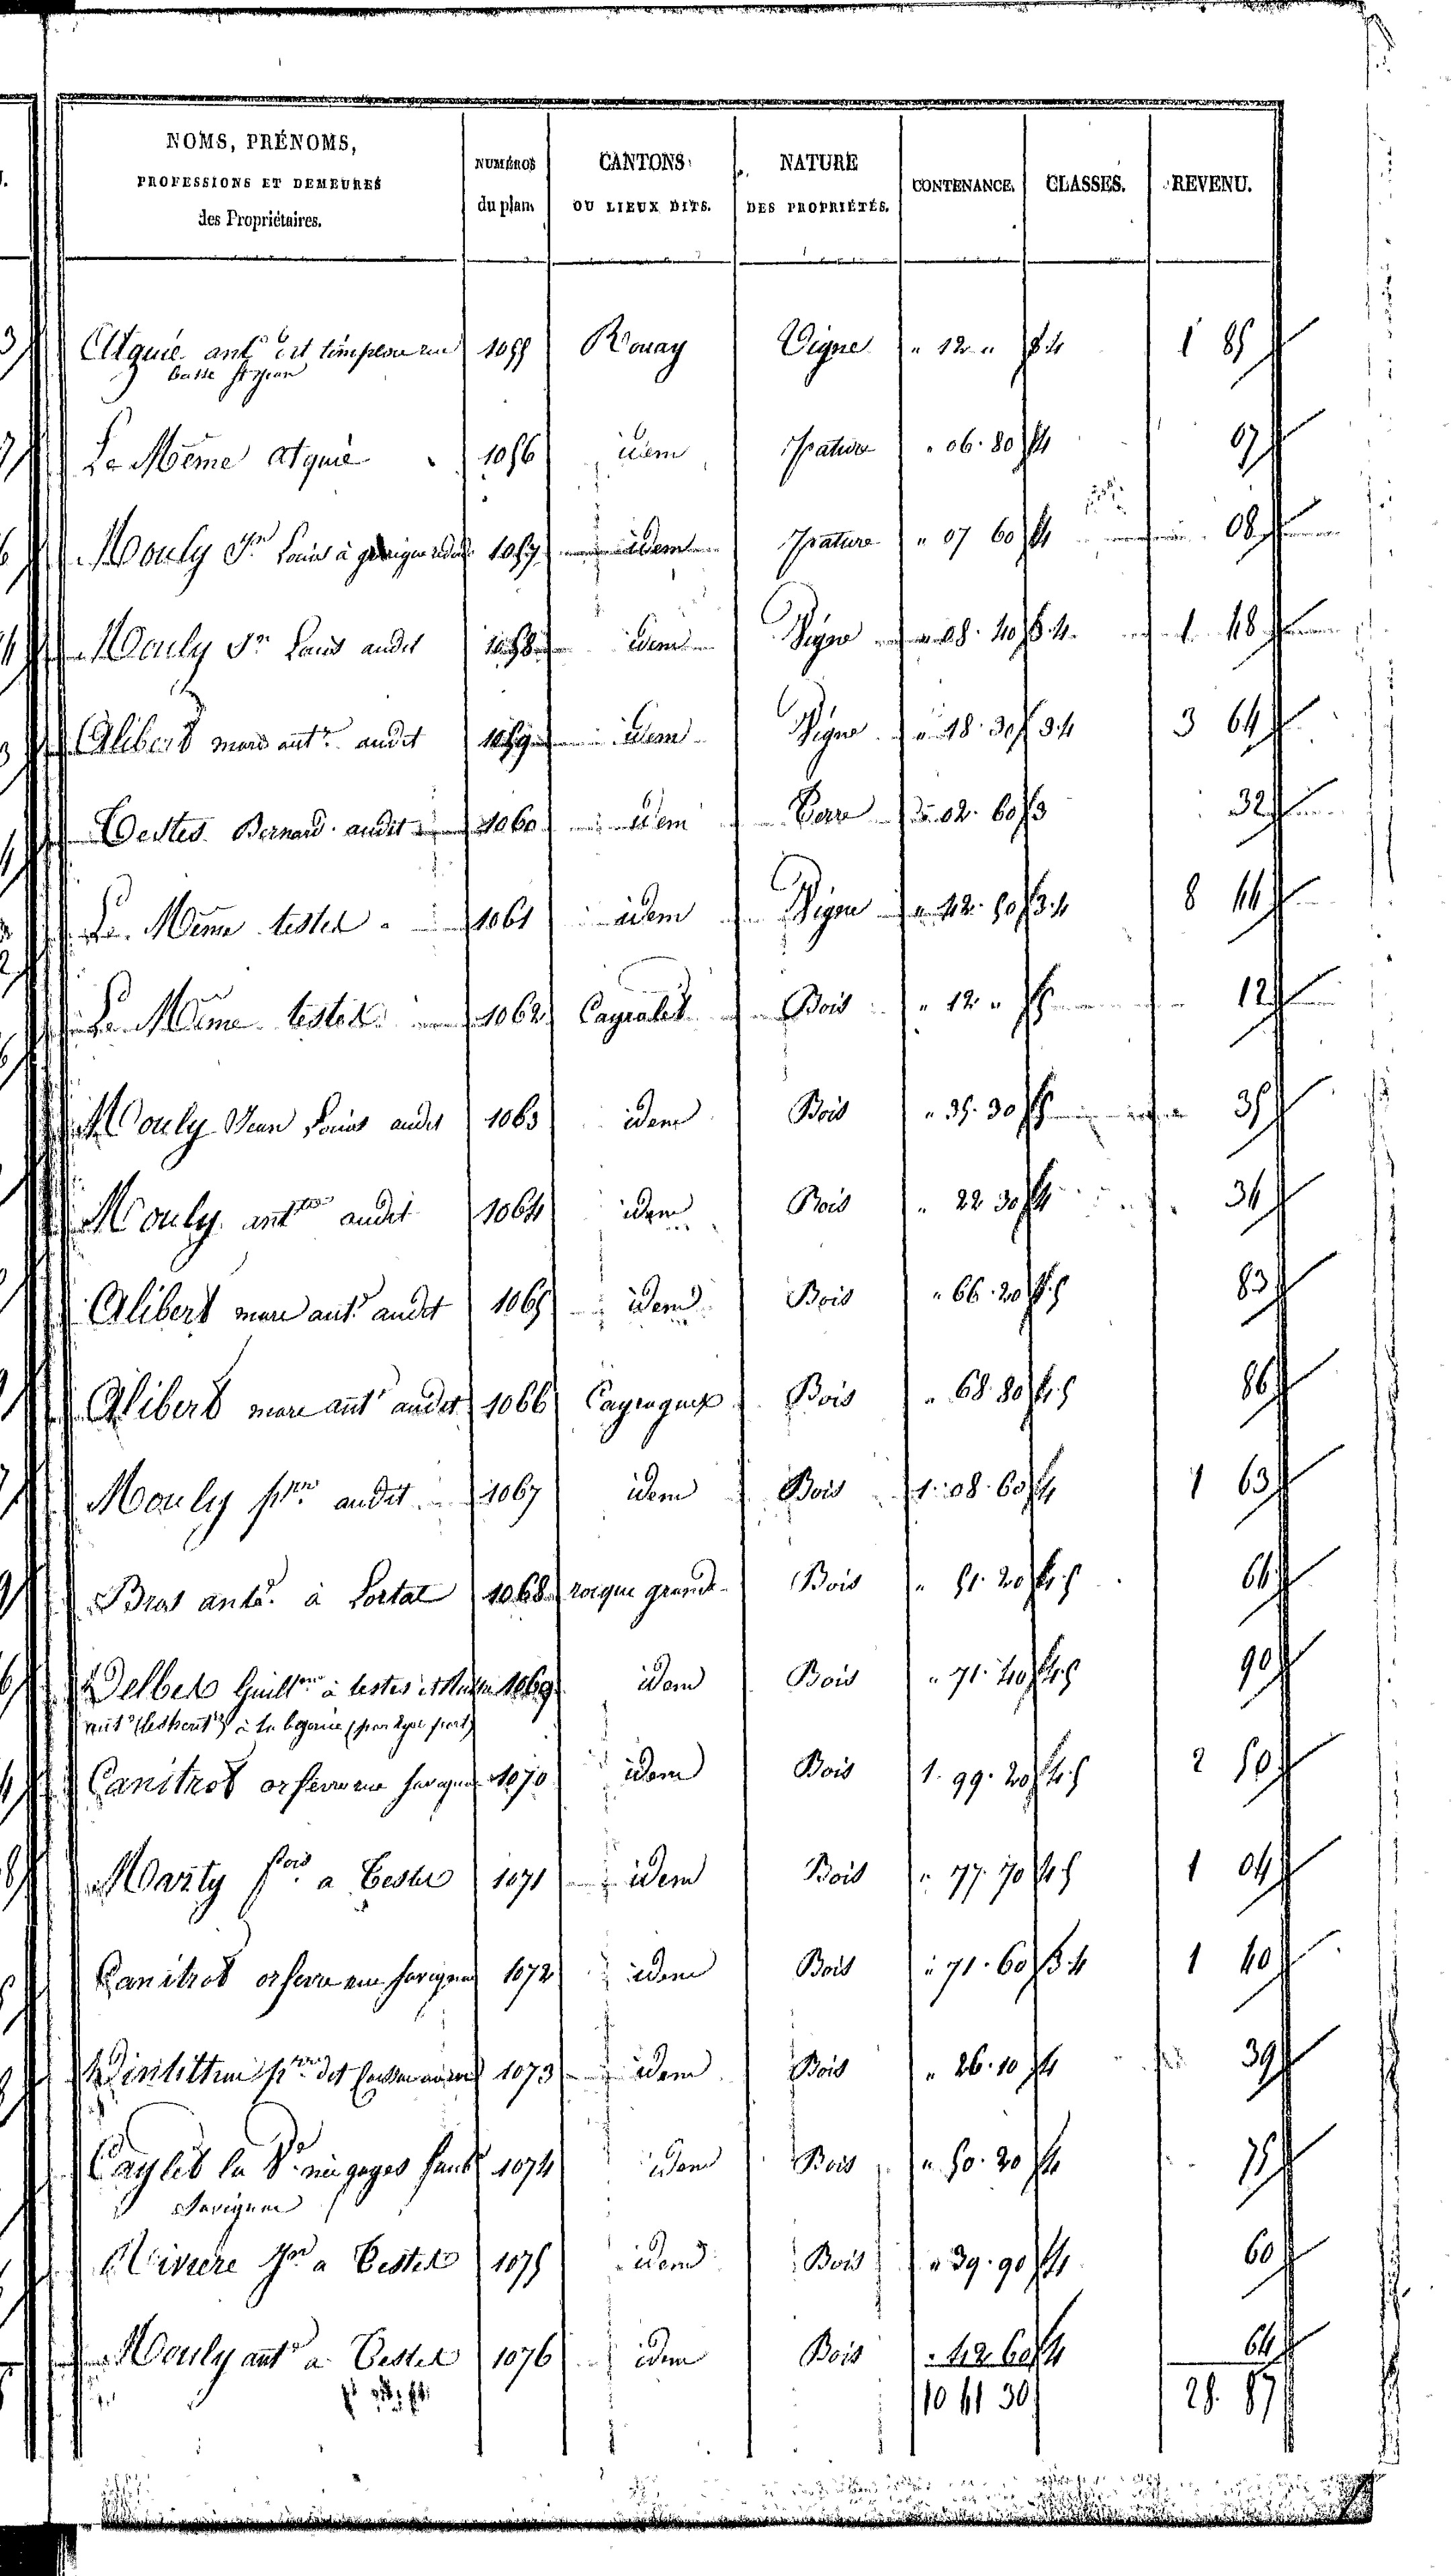 NOMS, PRÉNOMS,
PROFESSIONS ET DEMEURES
des Propriétaires.
NUMÉROS
du plan.
CANTONS
OU LIEUX DITS.
NATURE
DES PROPRIÉTÉS.
CONTENANCE.
CLASSES.
REVENU.
Atquié ant. 1055 Rouay Vigne " 12 " 3.4 1 85
Le Même atquié 1056 idem Pature " 06. 80 4 07
Mouly Jn Louis à 1057 idem Pature " 07 60 4 08
Mouly Jn Louis audit 1058 idem Vigne " 08. 40 3.4 1 48
Alibert marc antne audit 1059 idem Vigne " 18. 30 3.4 3 64
Testes Bernard audit 1060 idem Terre " 02. 60 3 32
Le Même testes 1061 idem Vigne " 42. 50 3.4 8 44
Le Même testes 1062 Cayralet Bois " 12 " 5 12
Mouly Jean Louis audit 1063 idem Bois " 35. 30 5 35
Mouly antne audit 1064 idem Bois " 22 30 4 34
Alibert marc ant. audit 1065 idem Bois " 66. 20 4.5 83
Alibert marc ant. audit 1066 Bois " 68. 80 4.5 86
Mouly pre audit 1067 idem Bois 1. 08. 60 4 1 63
Bras ant. à Lortal 1068 roque grande Bois " 51. 20 4.5 64
Delbes Guillme à testes 1069 idem Bois " 71. 40 4.5 90
Canitrot orfevre rue 1070 idem Bois 1. 99. 20 4.5 2 50
Marty fois a Testes 1071 idem Bois " 77. 70 4.5 1 04
Canitrot orfevre rue 1072 idem Bois " 71. 60 3.4 1 40
pre dit 1073 idem Bois " 26. 10 4 39
Caylet la Ve née 1074 idem Bois " 50. 20 4 75
Riviere Jn a Testes 1075 idem Bois " 39. 90 4 60
Mouly ant. a Testes 1076 idem Bois " 42 60 4 64
10 61 30 28. 87